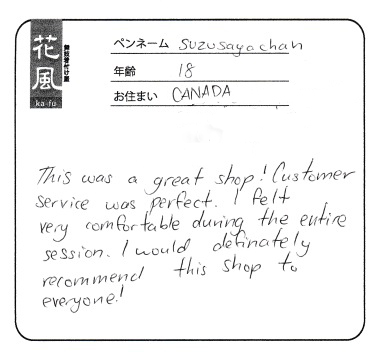 花風
舞妓着付け屋
ka-fu
ペンネーム suzusayachan
年齢 18
お住まい CANADA
This was a great shop! Customer
service was perfect. I felt
very comfortable during the entire
session. I would definately
recommend this shop to
everyone!